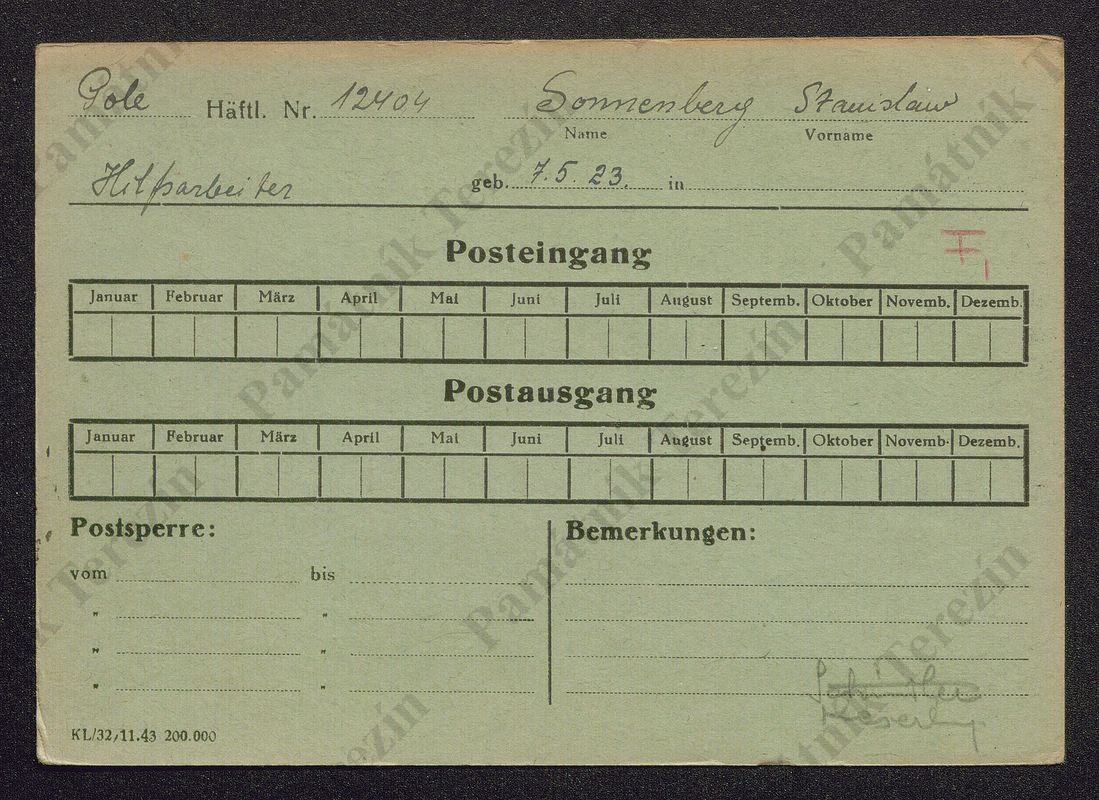 Pole Häftl. Nr. 12404 Sonnenberg Stanislaw
Name Vorname
Hilfsarbeiter geb. 7.5.23. in
F,
Posteingang
Januar Februar März April Mai Juni Juli August Septemb. Oktober Novemb. Dezemb.
Postausgang
Januar Februar März April Mai Juni Juli August Septemb. Oktober Novemb. Dezemb.
Postsperre: Bemerkungen:
vom bis
" "
" "
" "
KL/32/11.43 200.000
Památník Terezín